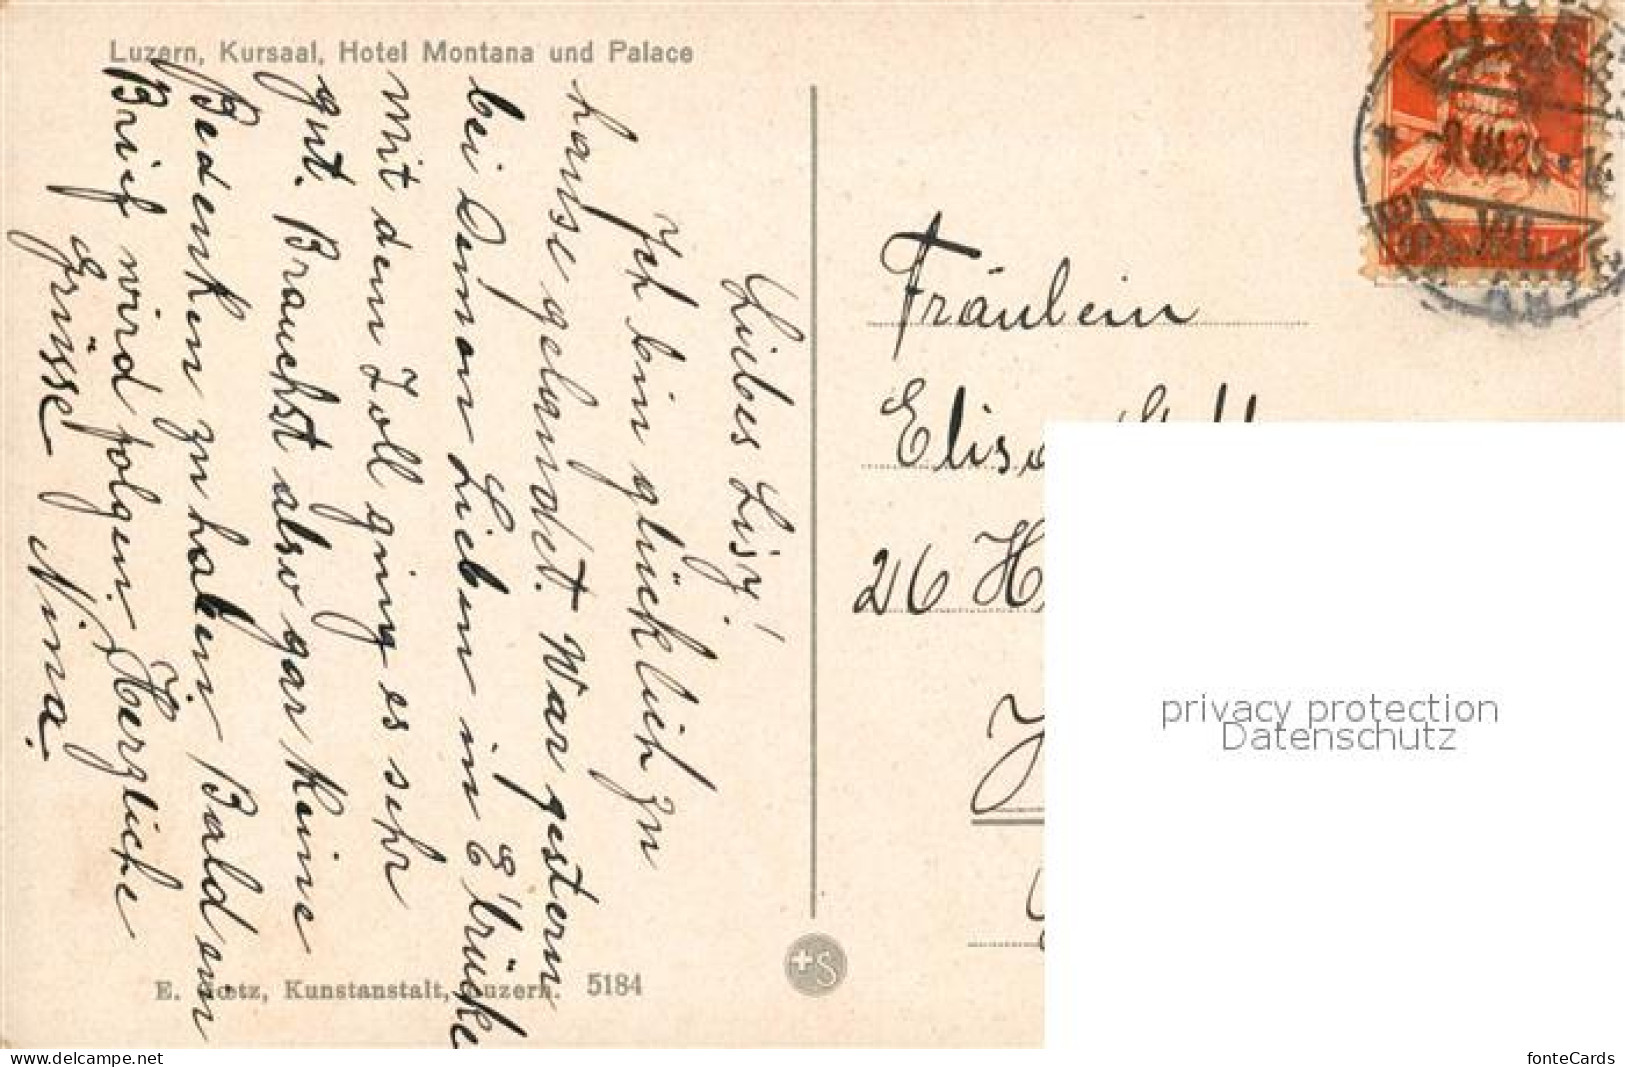 Luzern, Kursaal, Hotel Montana und Palace
Liebes Lisy!
Ich bin glücklich zu
hause gelandet. War gestern
bei Deinen Lieben in E'brücke
mit dem Zoll ging es sehr
gut. Brauchst also gar keine
Bedenken zu haben. Bald ein
Brief wird folgen. Herzliche
Grüsse Nina.
E. Goetz, Kunstanstalt, Luzern. 5184
+S
Fräulein
26
VII
HELVETIA
privacy protection
Datenschutz
fonteCards